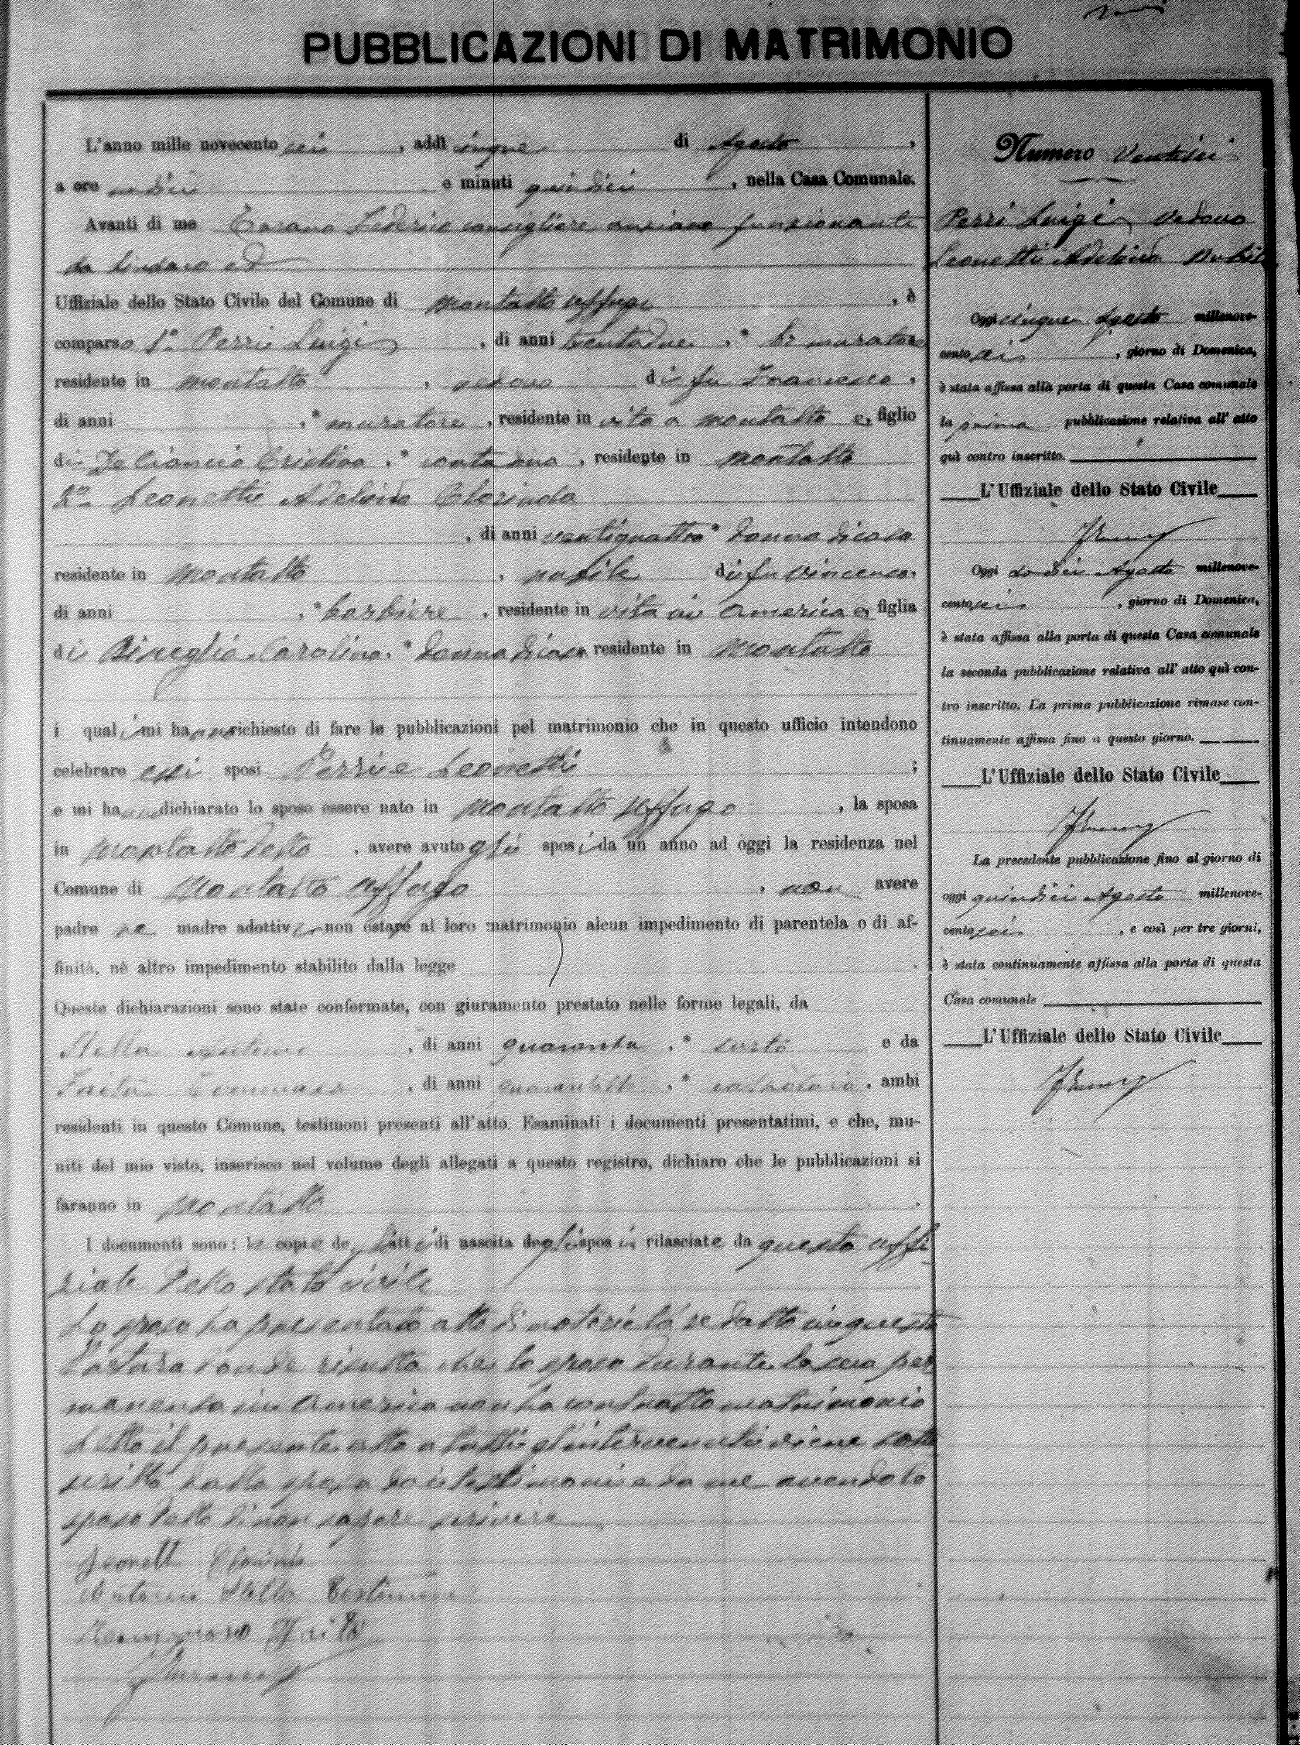 PUBBLICAZIONI DI MATRIMONIO
L'anno mille novecento sei, addì cinque di Agosto,
a ore undici e minuti quindici, nella Casa Comunale.
Avanti di me Federico consigliere anziano funzionante
da Sindaco ed
Uffiziale dello Stato Civile del Comune di Montalto Uffugo, è
comparso 1° Perri Luigi, di anni trentadue, muratore
residente in Montalto, vedovo di fu Francesco,
di anni , muratore, residente in vita a Montalto e, figlio
di Cristina, contadina, residente in Montalto
2° Leonetti Adelina Clorinda
, di anni ventiquattro donna di casa
residente in Montalto, nubile di fu Vincenzo,
di anni , barbiere, residente in vita in America e figlia
di Bisceglia Carolina, donna di casa residente in Montalto
i quali mi hanno richiesto di fare le pubblicazioni pel matrimonio che in questo ufficio intendono
celebrare essi sposi Perri e Leonetti ;
e mi hanno dichiarato lo sposo essere nato in Montalto Uffugo, la sposa
in Montalto detto, avere avuto gli sposi da un anno ad oggi la residenza nel
Comune di Montalto Uffugo, non avere
padre ne madre adottivi non ostare al loro matrimonio alcun impedimento di parentela o di af-
finità, nè altro impedimento stabilito dalla legge .
Queste dichiarazioni sono state confermate, con giuramento prestato nelle forme legali, da
Stella Antonio, di anni quaranta, sarto e da
Faita , di anni , calzolaio, ambi
residenti in questo Comune, testimoni presenti all'atto. Esaminati i documenti presentatimi, e che, mu-
niti del mio visto, inserisco nel volume degli allegati a questo registro, dichiaro che le pubblicazioni si
faranno in Montalto .
I documenti sono: le copie degli atti di nascita degli sposi rilasciate da questo uffi
ziale dello stato civile
Lo sposo ha presentato atto di notorietà redatto in questa
Pretura donde risulta che lo sposo durante la sua per
manenza in America non ha contratto matrimonio
Letto il presente atto a tutti gl'intervenuti viene sotto
scritto dalla sposa dai testimoni e da me avendo lo
sposo detto di non sapere scrivere
Leonetti Clorinda
Antonio Stella Testimone
Faita
Numero Ventisei
Perri Luigi, vedovo
Leonetti Adelina Nubile
Oggi cinque Agosto millenove-
cento sei, giorno di Domenica,
è stata affissa alla porta di questa Casa comunale
la prima pubblicazione relativa all'atto
quì contro inscritto.
L'Uffiziale dello Stato Civile
Oggi dodici Agosto millenove-
cento sei, giorno di Domenica,
è stata affissa alla porta di questa Casa comunale
la seconda pubblicazione relativa all'atto quì con-
tro inscritto. La prima pubblicazione rimase con-
tinuamente affissa fino a questo giorno.
L'Uffiziale dello Stato Civile
La precedente pubblicazione fino al giorno di
oggi quindici Agosto millenove-
cento sei, e così per tre giorni,
è stata continuamente affissa alla porta di questa
Casa comunale
L'Uffiziale dello Stato Civile